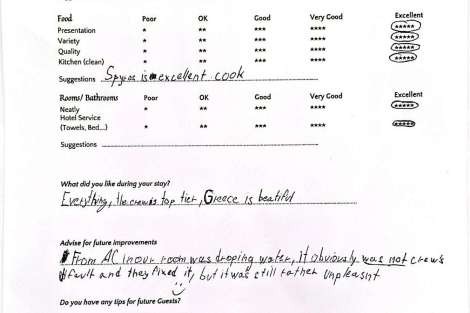 Food Poor OK Good Very Good Excellent
Presentation * ** *** **** *****
Variety * ** *** **** *****
Quality * ** *** **** *****
Kitchen (clean) * ** *** **** *****
Suggestions Spyros is excellent cook
Rooms/ Bathrooms Poor OK Good Very Good Excellent
Neatly * ** *** **** *****
Hotel Service
(Towels, Bed...) * ** *** **** *****
Suggestions
What did you like during your stay?
Everything, the crew is top tier, Greece is beatiful
Advise for future improvements
From AC in our room was droping water, It obviously was not crew's
fault and they fixed it, but it was still rather unpleasnt
Do you have any tips for future Guests?